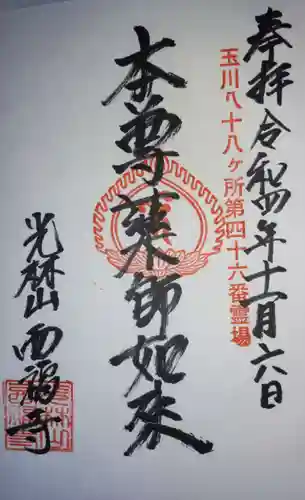 奉拝 令和四年十一月六日
玉川八十八ヶ所第四十六番霊場
本尊薬師如来
光林山 西福寺